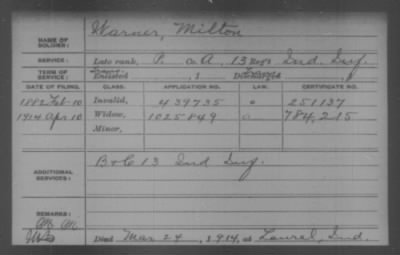 NAME OF SOLDIER: Warner, Milton
SERVICE: Late rank, P. Co. A, 13 Reg't Ind. Inf.
TERM OF SERVICE: Enlisted , 1 Discharged , 1
DATE OF FILING. CLASS. APPLICATION NO. LAW. CERTIFICATE NO.
1882 Feb 10 Invalid, 439735 251137
1914 Apr 10 Widow, 1025849 784,215
Minor,
ADDITIONAL SERVICES: B & C 13 Ind Inf.
REMARKS:
Died Mar 24, 1914, at Laurel, Ind.